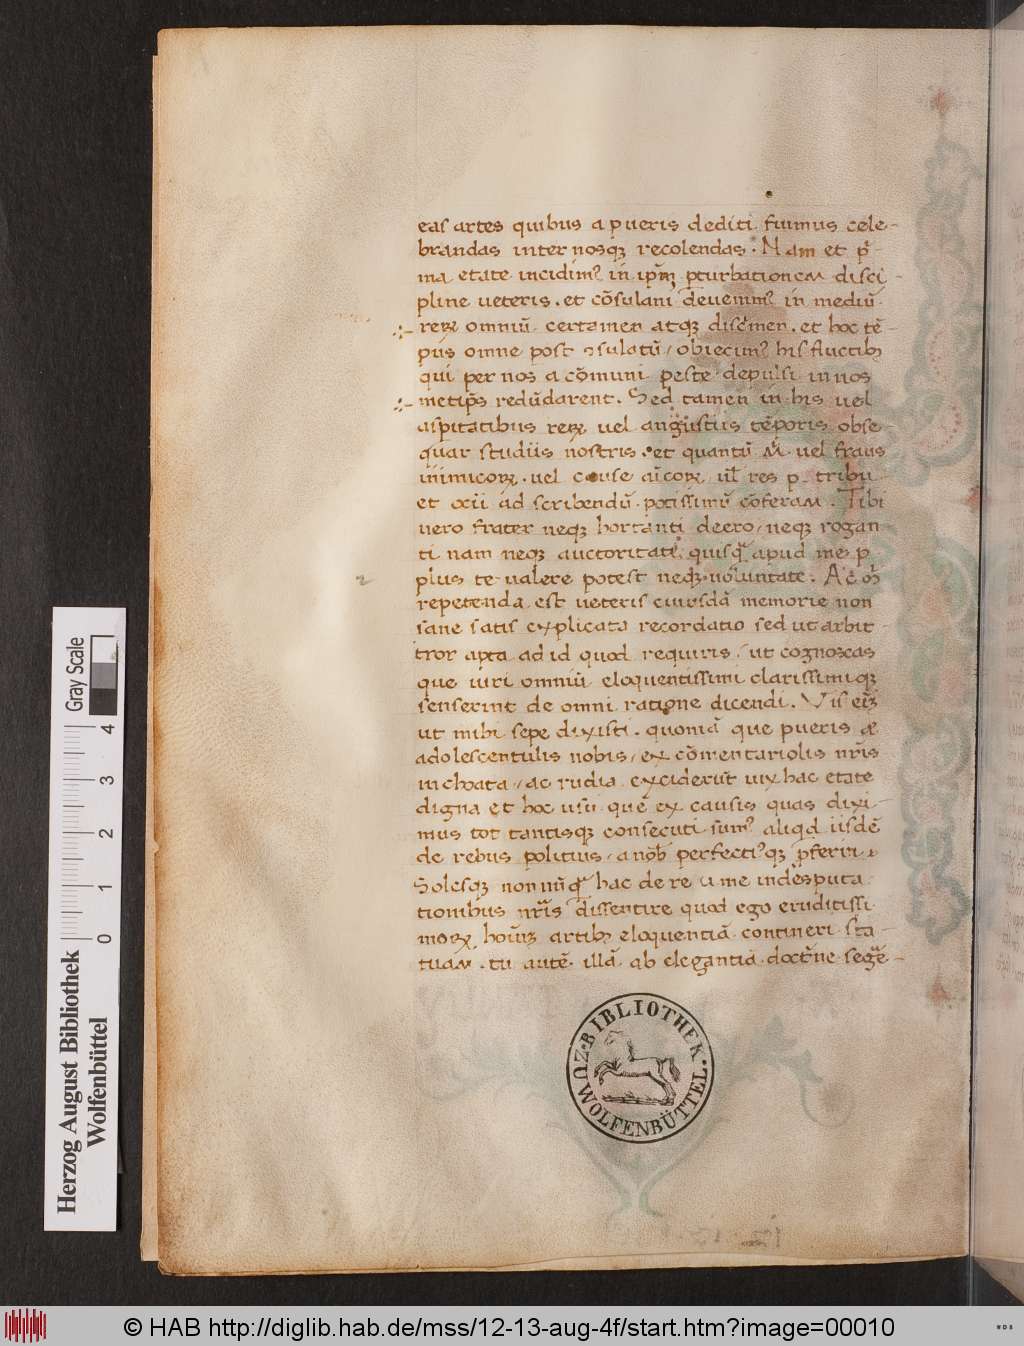 eas artes quibus a pueris dediti fuimus cele-
brandas inter nosqꝫ recolendas. Nam et pͥ-
ma etate incidimꝰ in ip̄am ꝑturbationem disci-
pline veteris. et cōsulatu devenimꝰ in mediū
reꝝ omniū certamen atqꝫ discͥmen. et hoc tē-
pus omne post ꝯsulatū / obiecimꝰ his fluctibꝫ
qui per nos a cōmuni peste depulsi in nos
metip̄s redūdarent. Sed tamen in his vel
asꝑitatibus reꝝ vel angustiis tēporis obse-
quar studiis nostris. et quantū mͥ vel fraus
inimicoꝝ. vel cause amͥcoꝝ ul̄ res p. tribu
et ocii ad scribendū potissimū cōferam. Tibi
vero frater neqꝫ hortanti deero / neqꝫ rogan
ti nam neqꝫ auctoritate quisq̄ apud me p
plus te valere potest neqꝫ voluntate. Ac mͥ
repetenda est veteris cuiusdā memorie non
sane satis explicata recordatio sed ut arbit-
tror apta ad id quod requiris. ut cognoscas
que viri omniū eloquentissimi clarissimiqꝫ
senserint de omni ratione dicendi. Vis eīꝫ
ut mihi sepe dixisti. quoniā que pueris aut
adolescentulis nobis / ex cōmentariolis nr̄is
inchoata / ac rudia exciderūt vix hac etate
digna et hoc usu quē ex causis quas dixi-
mus tot tantisqꝫ consecuti sumꝰ aliqd iisdē
de rebus politius / a nob̄ perfectiꝰqꝫ ꝓferri.
Solesqꝫ nonnūq̄ hac de re a me in desputa
tionibus nr̄is dissentire quod ego eruditissi
moꝝ hoīnꝫ artibꝫ eloquentiā contineri sta-
tuam. tu autē illā ab elegantia doctͥne segͤ-
BIBLIOTHEK ZU WOLFENBÜTTEL
Gray Scale
4 3 2 1 0
Herzog August Bibliothek
Wolfenbüttel
© HAB http://diglib.hab.de/mss/12-13-aug-4f/start.htm?image=00010